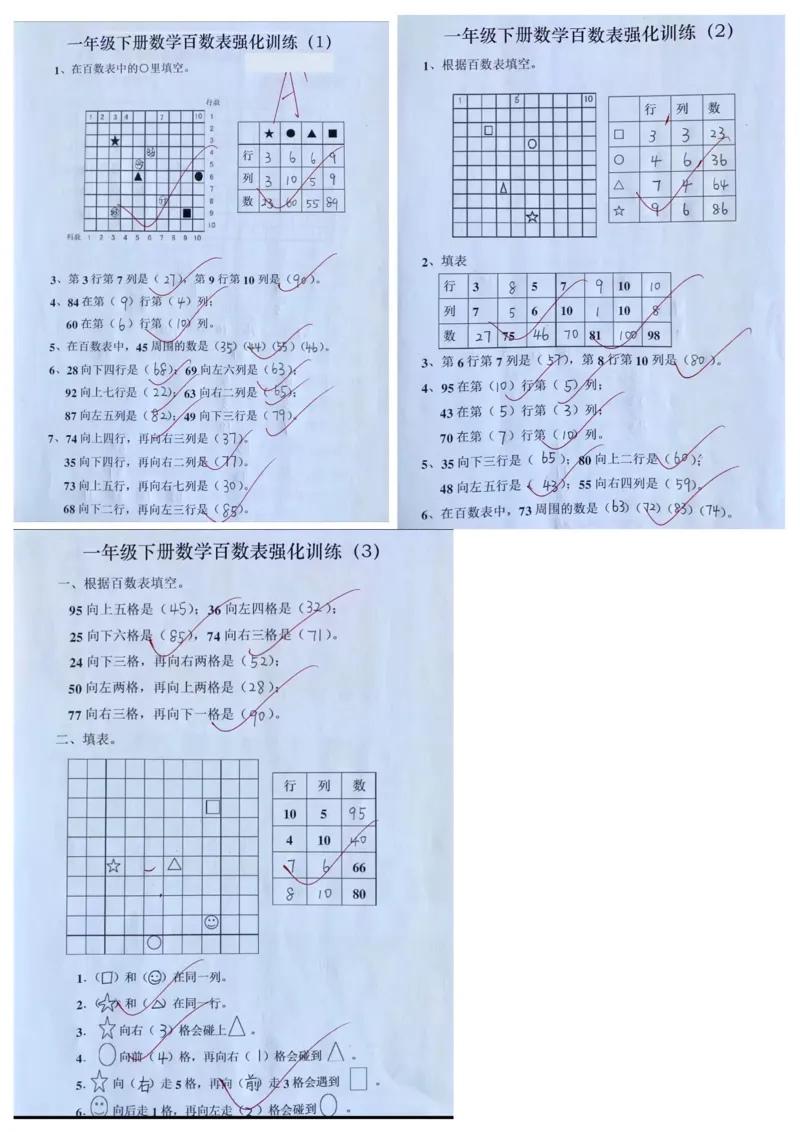 一年级下册数学百数表强化训练（1）
1、在百数表中的○里填空。
行数
1 2 3 4 7 10 1
2
3
4
5
6
7
8
9
10
列数 1 2 3 4 5 6 7 8 9 10
★ ● ▲ ■
行 3 6 6 9
列 3 10 5 9
数 23 60 55 89
3、第3行第7列是（27），第9行第10列是（90）。
4、84在第（9）行第（4）列；
60在第（6）行第（10）列。
5、在百数表中，45周围的数是（35）（44）（55）（46）。
6、28向下四行是（68）；69向左六列是（63）；
92向上七行是（22）；63向右二列是（65）；
87向左五列是（82）；49向下三行是（79）。
7、74向上四行，再向右三列是（37）。
35向下四行，再向右二列是（77）。
73向上五行，再向右七列是（30）。
68向下二行，再向左三行是（85）。
一年级下册数学百数表强化训练（2）
1、根据百数表填空。
1 5 10
行 列 数
□ 3 3 23
○ 4 6 36
△ 7 4 64
☆ 9 6 86
2、填表
行 3 8 5 7 9 10 10
列 7 5 6 10 1 10 8
数 27 75 46 70 81 100 98
3、第6行第7列是（57），第8行第10列是（80）。
4、95在第（10）行第（5）列；
43在第（5）行第（3）列；
70在第（7）行第（10）列。
5、35向下三行是（65）；80向上二行是（60）；
48向左五行是（43）；55向右四列是（59）。
6、在百数表中，73周围的数是（63）（72）（83）（74）。
一年级下册数学百数表强化训练（3）
一、根据百数表填空。
95向上五格是（45）；36向左四格是（32）；
25向下六格是（85），74向右三格是（71）。
24向下三格，再向右两格是（52）；
50向左两格，再向上两格是（28）；
77向右三格，再向下一格是（90）。
二、填表。
行 列 数
10 5 95
4 10 40
7 6 66
8 10 80
1.（□）和（☺）在同一列。
2.（☆）和（△）在同一行。
3. ☆向右（3）格会碰上△。
4. ○向前（4）格，再向右（1）格会碰到△。
5. ☆向（右）走5格，再向（前）走3格会遇到□。
6. ☺向后走1格，再向左走（2）格会碰到○。